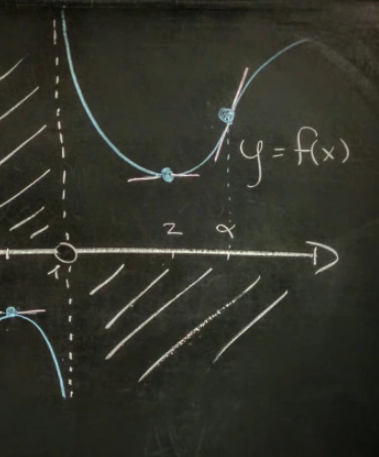 y = f(x)
2 α
1